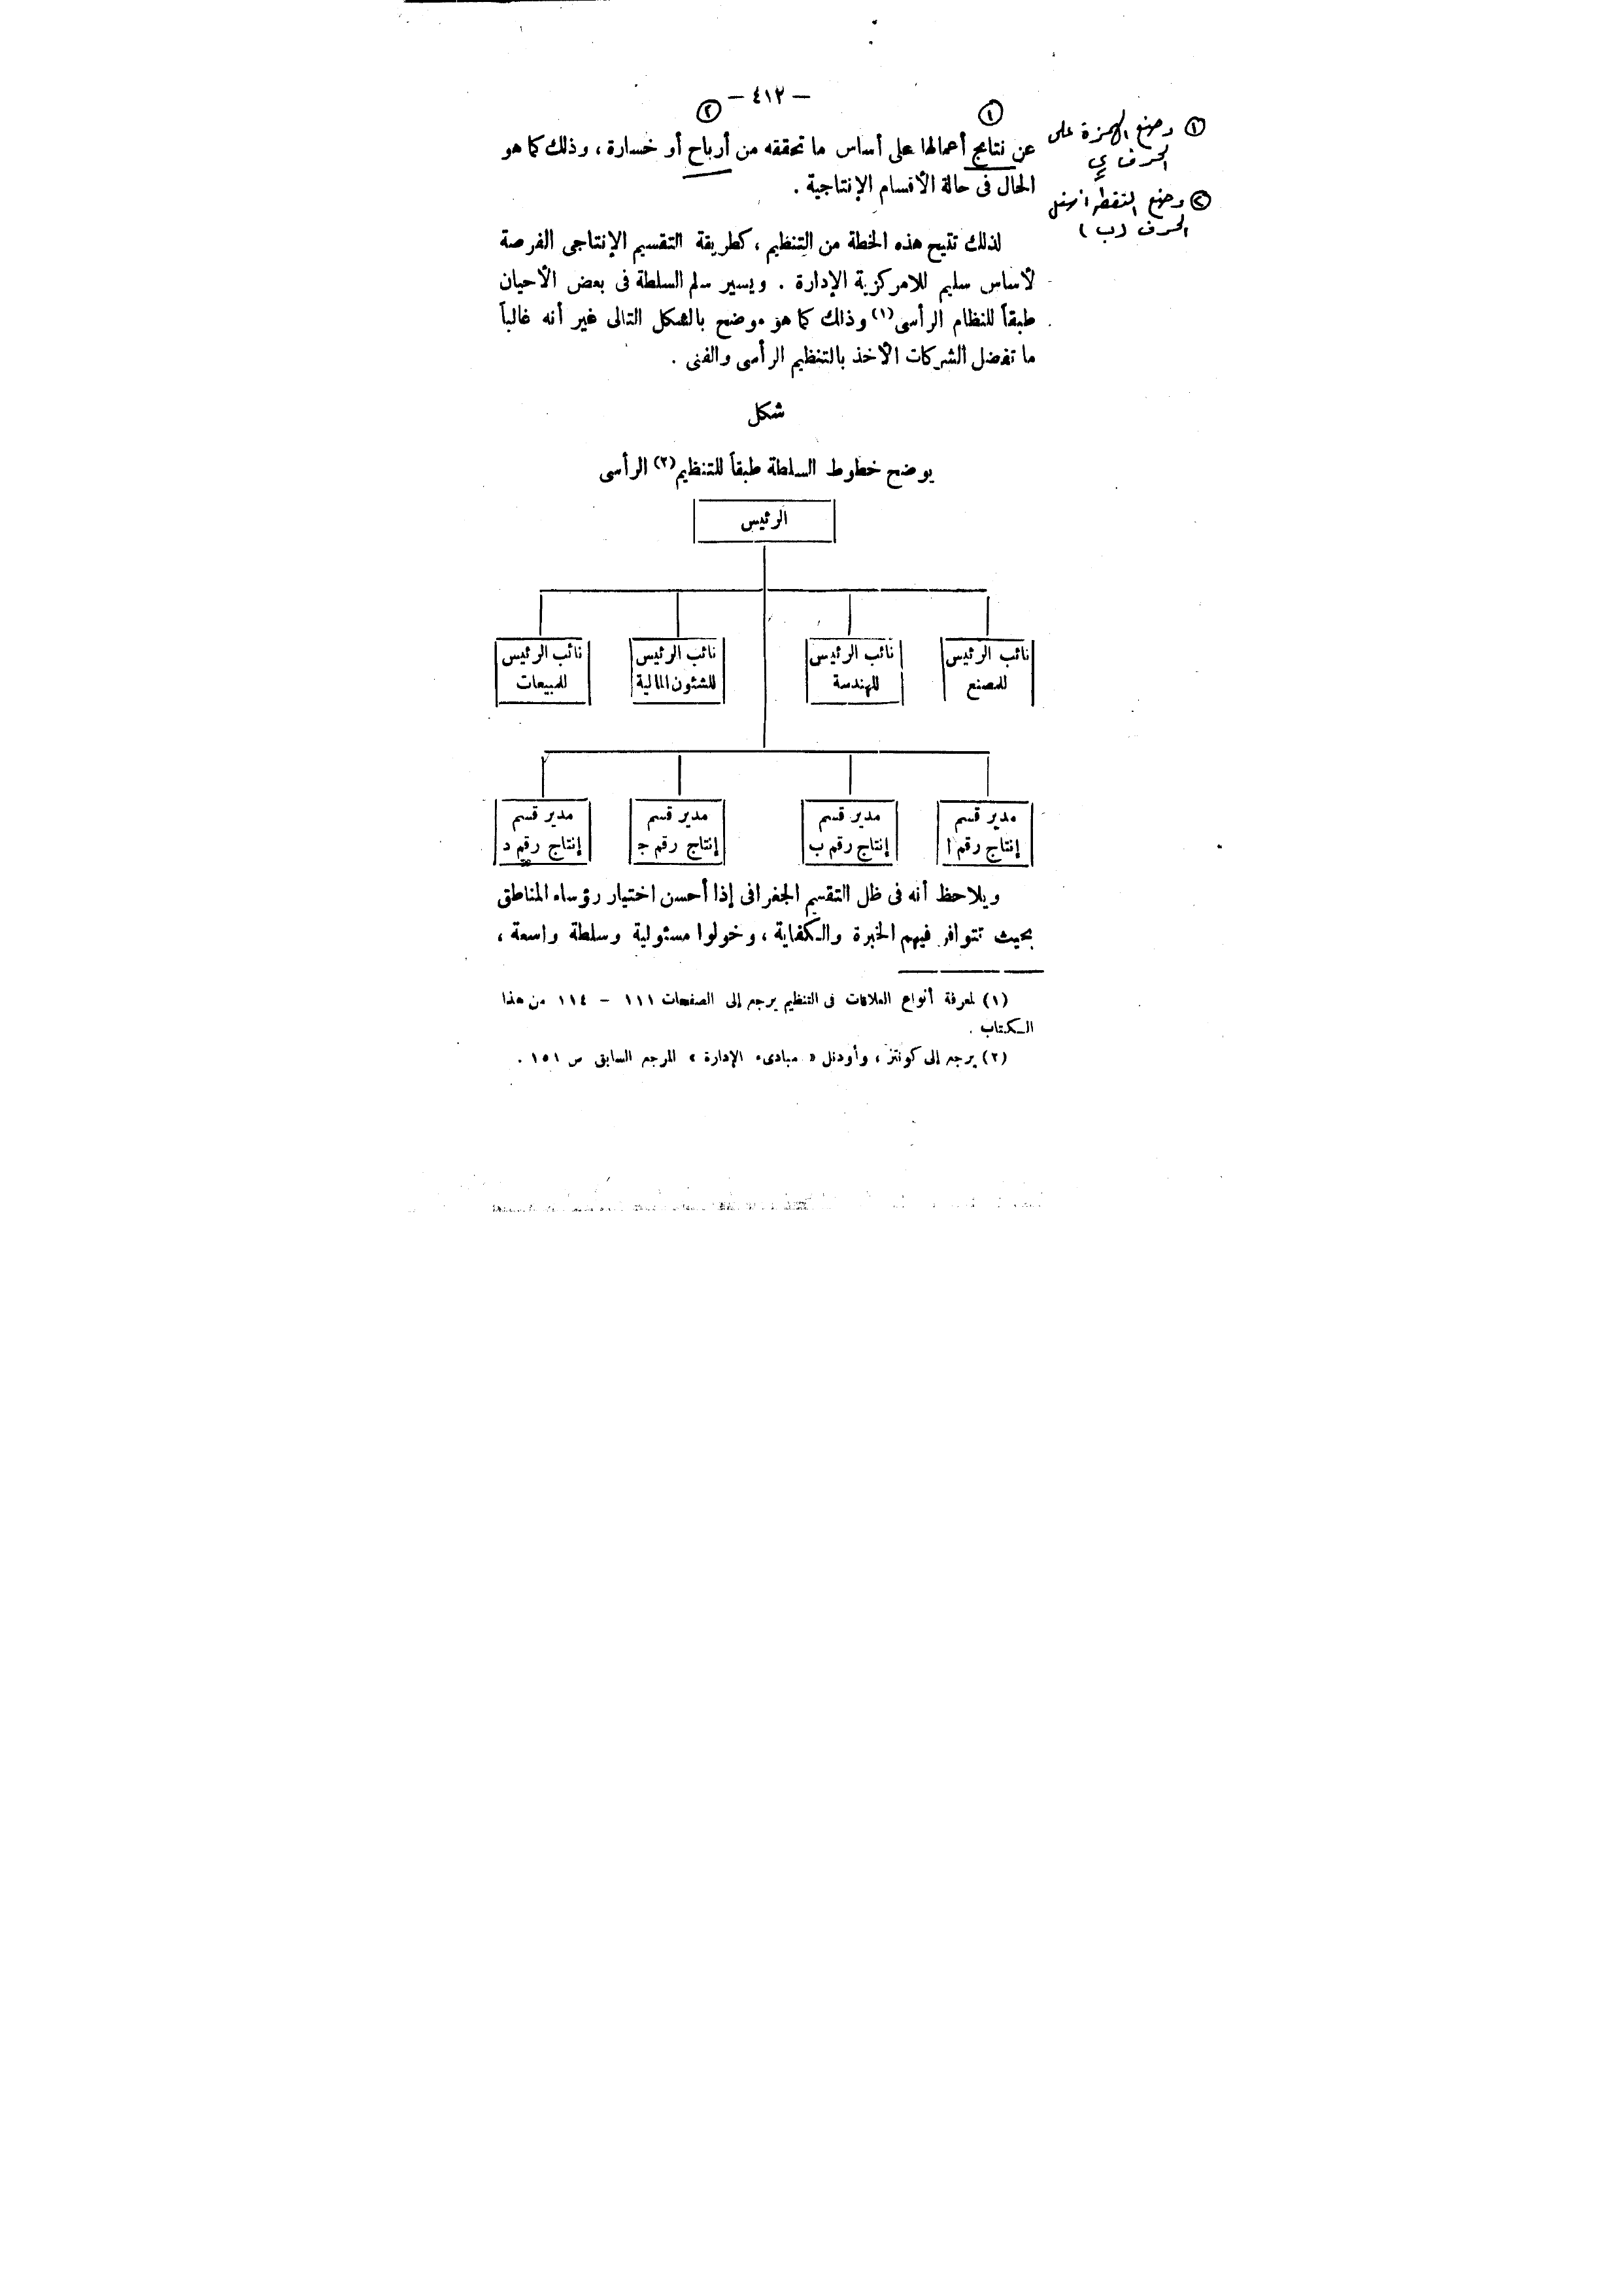 — ٤١٢ —
①
②
عن نتايج أعمالها على أساس ما تحققه من أرباح أو خسارة ، وذلك كما هو
الحال فى حالة الأقسام الإنتاجية .
① وضع الهمزة على
الحرف ئ
② وضع النقطه اسفل
الحرف (ب)
لذلك تتيح هذه الخطة من التنظيم ، كطريقة التقسيم الإنتاجى الفرصة
لأساس سليم للامركزية الإدارة . ويسير سلم السلطة فى بعض الأحيان
طبقاً للنظام الرأسى (١) وذلك كما هو موضح بالشكل التالى غير أنه غالباً
ما تفضل الشركات الأخذ بالتنظيم الرأسى والفنى .
شكل
يوضح خطوط السلطة طبقاً للتنظيم (٢) الرأسى
الرئيس
نائب الرئيس
للمصنع
نائب الرئيس
للهندسة
نائب الرئيس
للشئون المالية
نائب الرئيس
للمبيعات
مدير قسم
إنتاج رقم ا
مدير قسم
إنتاج رقم ب
مدير قسم
إنتاج رقم ج
مدير قسم
إنتاج رقم د
ويلاحظ أنه فى ظل التقسيم الجغرافى إذا أحسن اختيار رؤساء المناطق
بحيث تتوافر فيهم الخبرة والكفاية ، وخولوا مسئولية وسلطة واسعة ،
(١) لمعرفة أنواع العلاقات فى التنظيم يرجع إلى الصفحات ١١١ – ١١٤ من هذا
الكتاب .
(٢) يرجع إلى كونتز ، وأودنل « مبادىء الإدارة » المرجع السابق ص ١٥١ .